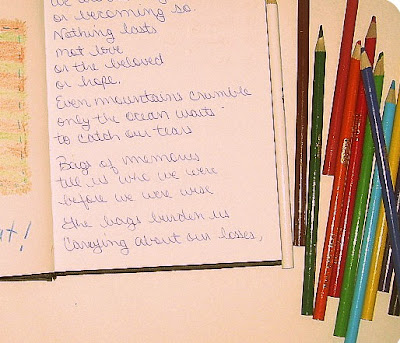 or becoming so.
Nothing lasts
not love
or the beloved
or hope.
Even mountains crumble
only the ocean waits
to catch our tears
Bags of memories
tell us who we were
before we were wise
The bags burden us
Carrying about our losses,